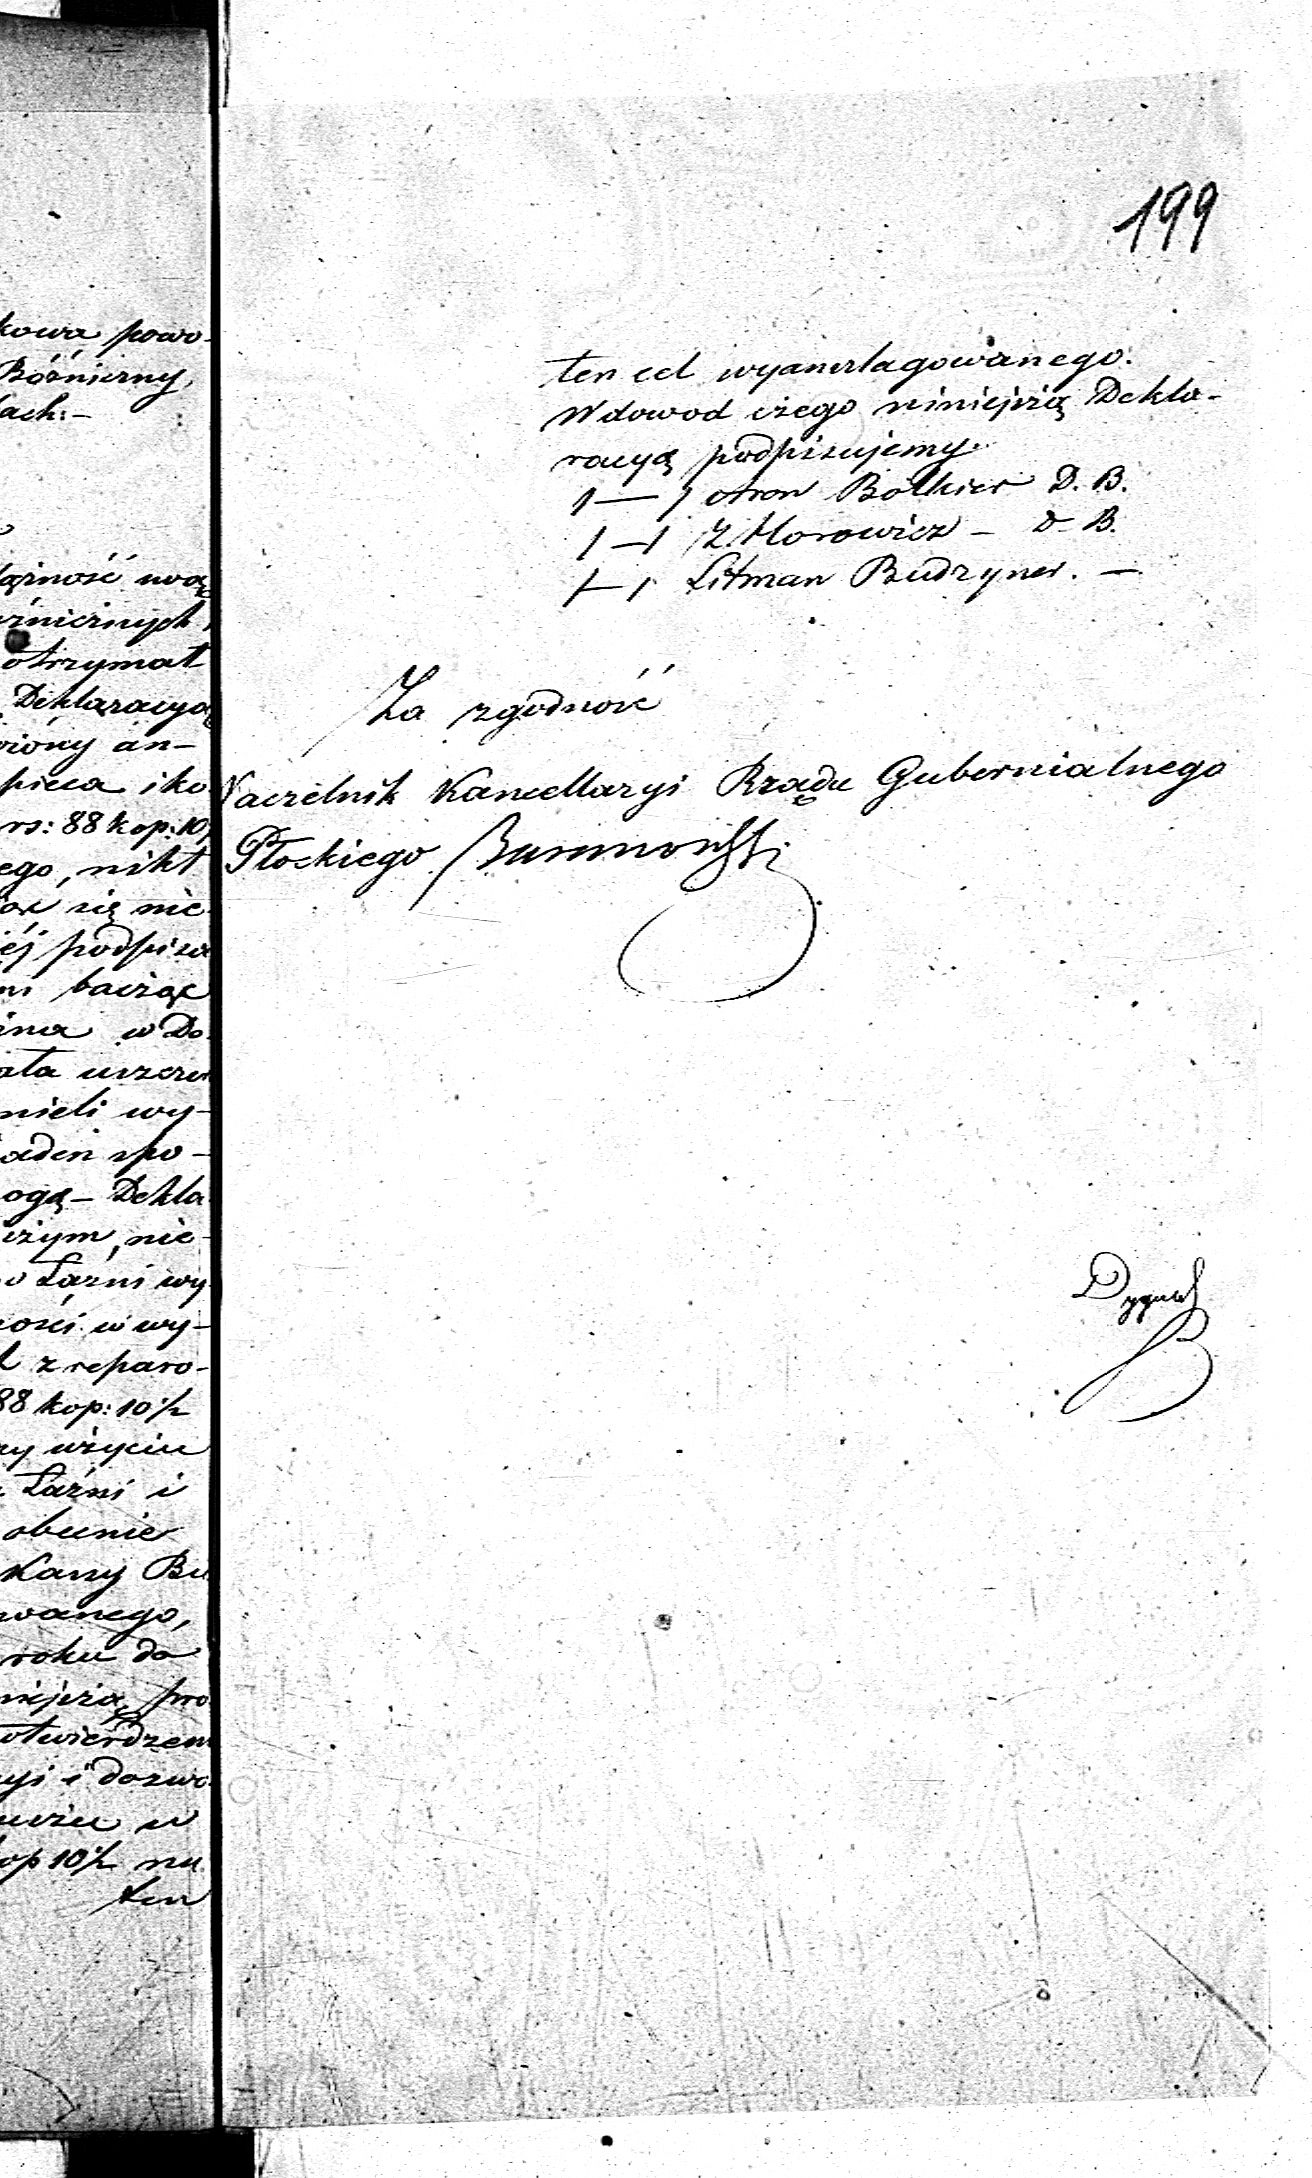 kowa powo-
Bóźniczny,
łach:-
ważność uwa
otrzymał
Deklaracya
an-
pieca i ko
rs: 88 kop: 10
ego, nikt
się nie
ej podpisa
ni bacząc
w Do
ata
mieli wy-
aden spo-
ogą - Dekla
czym, nie-
o Łaźni wy
ości w wy-
z reparo-
88 kop: 10½
ry użyciu
Łaźni i
obecnie
Kassy Bu
wanego,
roku do
niejszą pro
otwierdzen
cyi i dozwo
w
kop 10½ na
ten
199
ten cel wyanerlagowanego.
W dowod czego niniejszą Dekla-
racyą podpisujemy.
/ — / Aron Bołkier D. B.
/ — / Z. Horowicz - D B.
/ — / Litman Budzyner. —
Za zgodność
Naczelnik Kancellaryi Rządu Gubernialnego
Płockiego